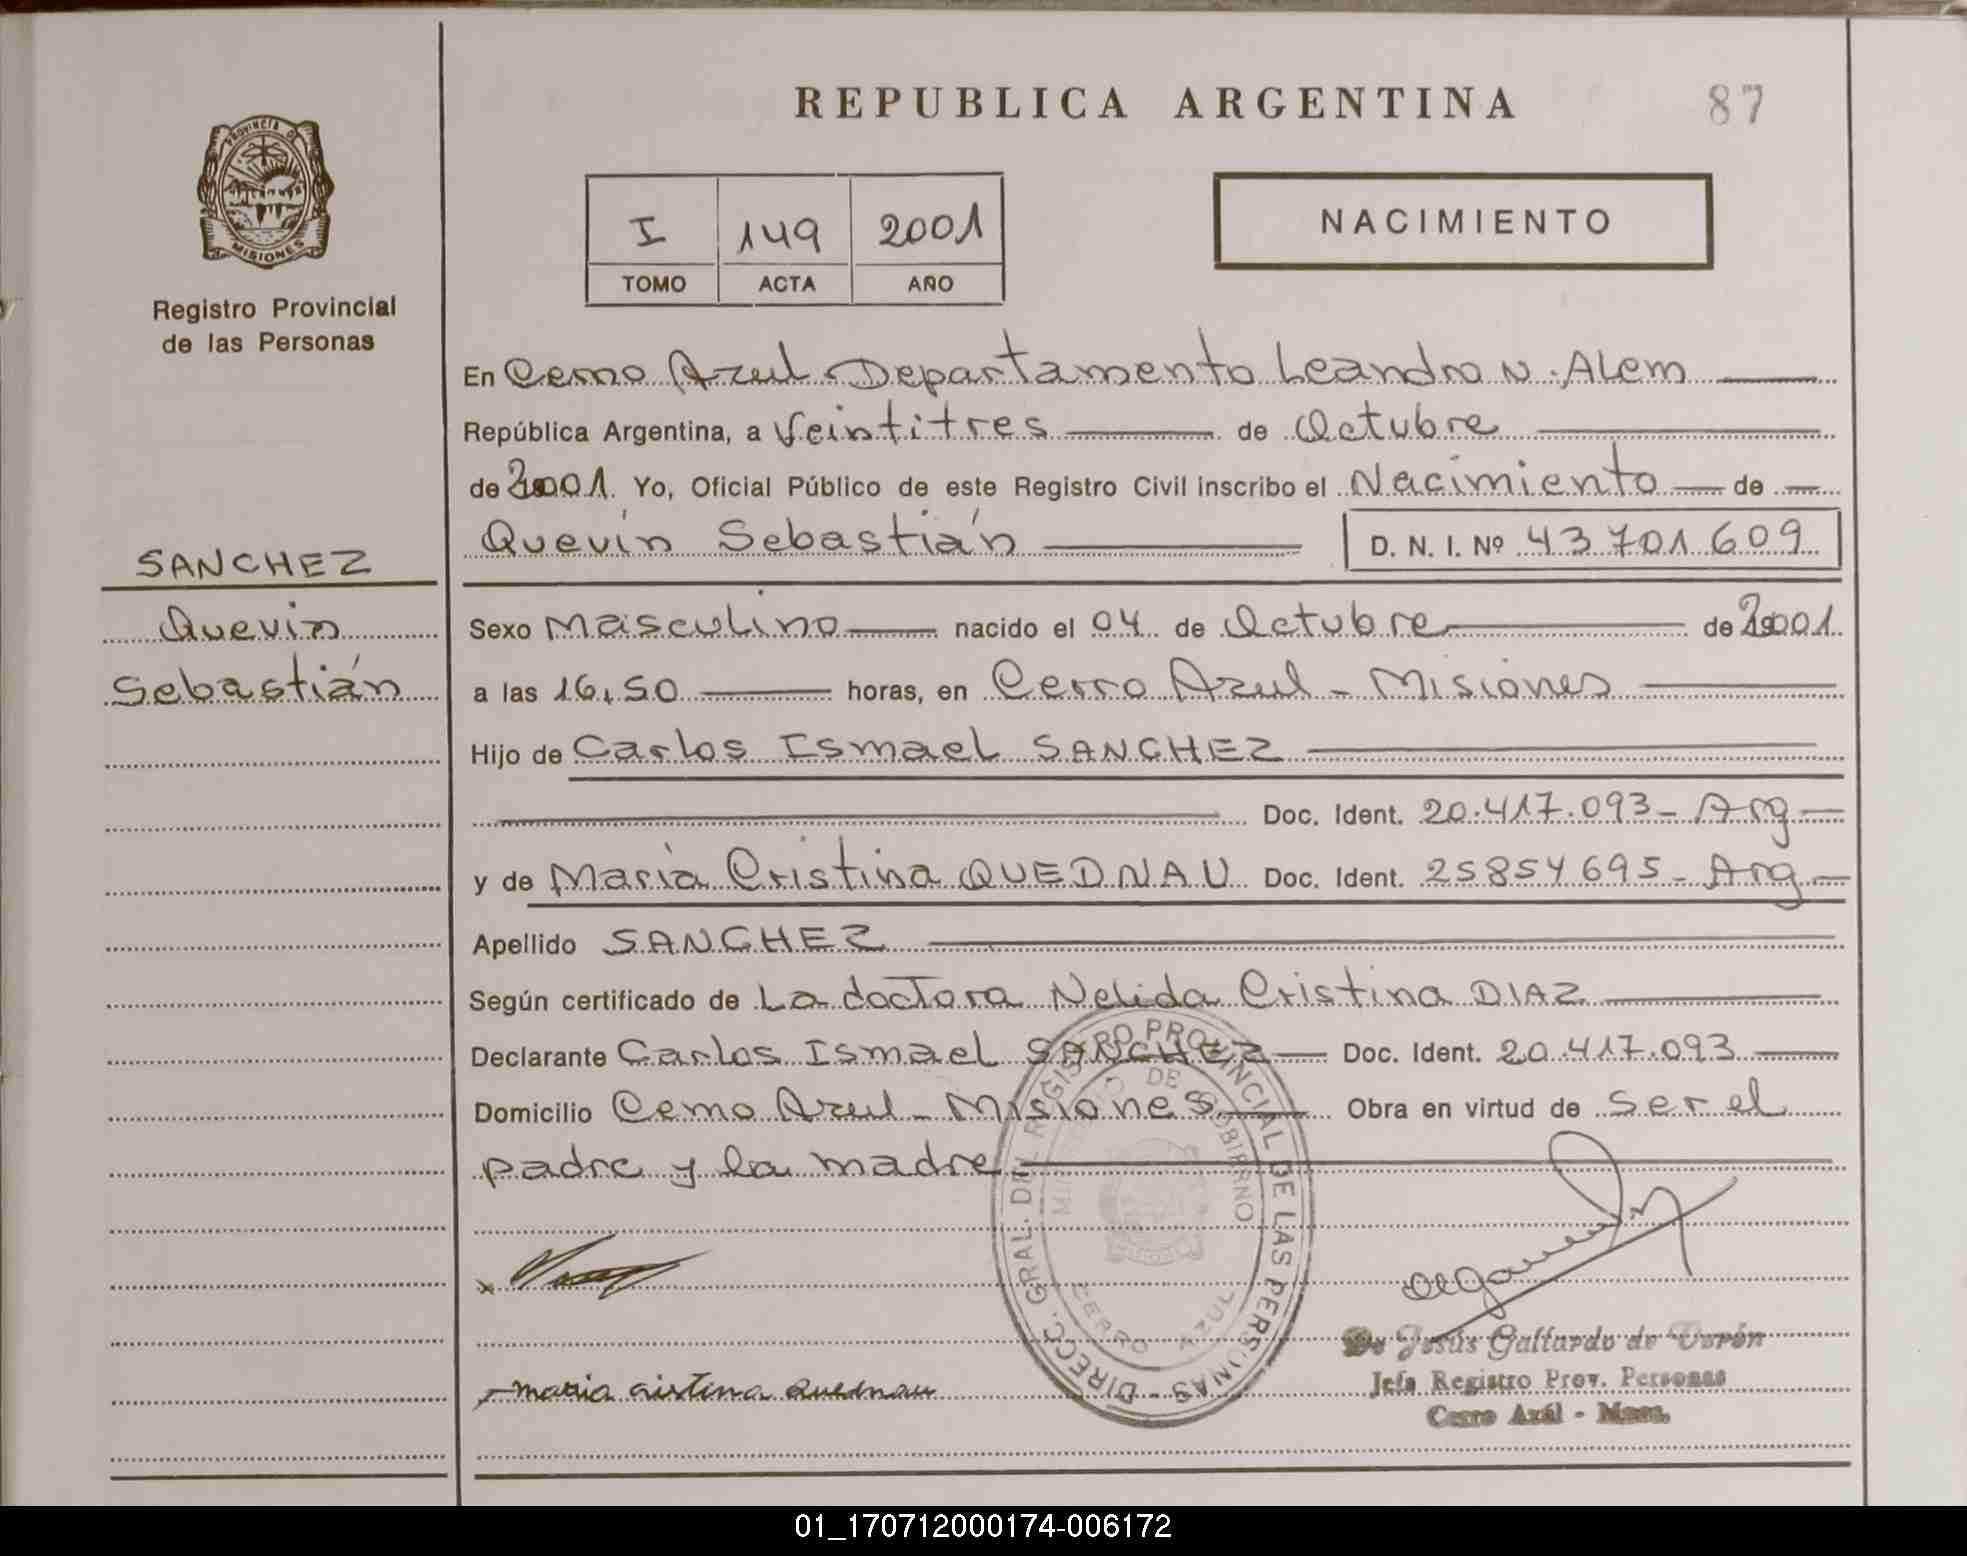 REPUBLICA ARGENTINA
87
PROVINCIA DE
MISIONES
Registro Provincial
de las Personas
I 149 2001
TOMO ACTA AÑO
NACIMIENTO
En Cerro Azul Departamento Leandro N. Alem
República Argentina, a Veintitres de Octubre
de 2001. Yo, Oficial Público de este Registro Civil inscribo el Nacimiento de
Quevín Sebastián D. N. I. Nº 43701609
SANCHEZ
Quevín
Sebastián
Sexo Masculino nacido el 04 de Octubre de 2001.
a las 16,50 horas, en Cerro Azul - Misiones
Hijo de Carlos Ismael SANCHEZ
Doc. Ident. 20.417.093- Arg
y de María Cristina QUEDNAU Doc. Ident. 25854695- Arg
Apellido SANCHEZ
Según certificado de La doctora Nelida Cristina DIAZ
Declarante Carlos Ismael SANCHEZ Doc. Ident. 20.417.093
Domicilio Cerro Azul - Misiones Obra en virtud de Ser el
padre y la madre
DIRECC. GRAL. DEL REGISTRO PROVINCIAL DE LAS PERSONAS -
MINISTERIO DE GOBIERNO
CERRO AZUL
x
maria cristina Quednau
De Jesús Gallardo de
Jefa Registro Prov. Personas
Cerro Azúl - Mnes.
01_170712000174-006172